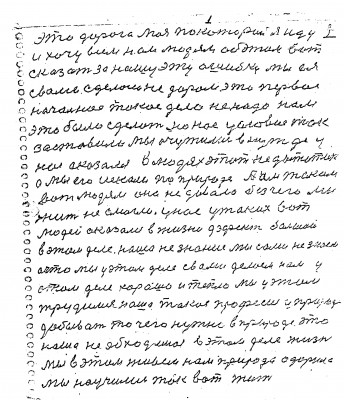 1
Это дорога моя по которой я иду 1
и хочу всем нам людям об этом вот
сказат за нашу эту ошибку мы ея
сваме сделоли не даром это первое
началное такое дело ненадо нам
это было сделат но нас условие так
заставили мы очутилис в нужде у
нас оказался в людях этот недытаток
а мы его искали по природе Там таком
вот людям она не давала без чего мы
жит не смогли. у нас у таких вот
людей оказалс в жизни дэфект болшой
в этом деле. наша не знание мы сами не знаем
а што мы у этом деле сваме делоем нам у
этом деле хорошо и тепло мы у этом
трудимся наша такая професия у природе
добыват то чего нужно в природе это
наша не обходимая в этом деле жизн
мы в этом живьем нам природа одарила
мы научилис так вот жит